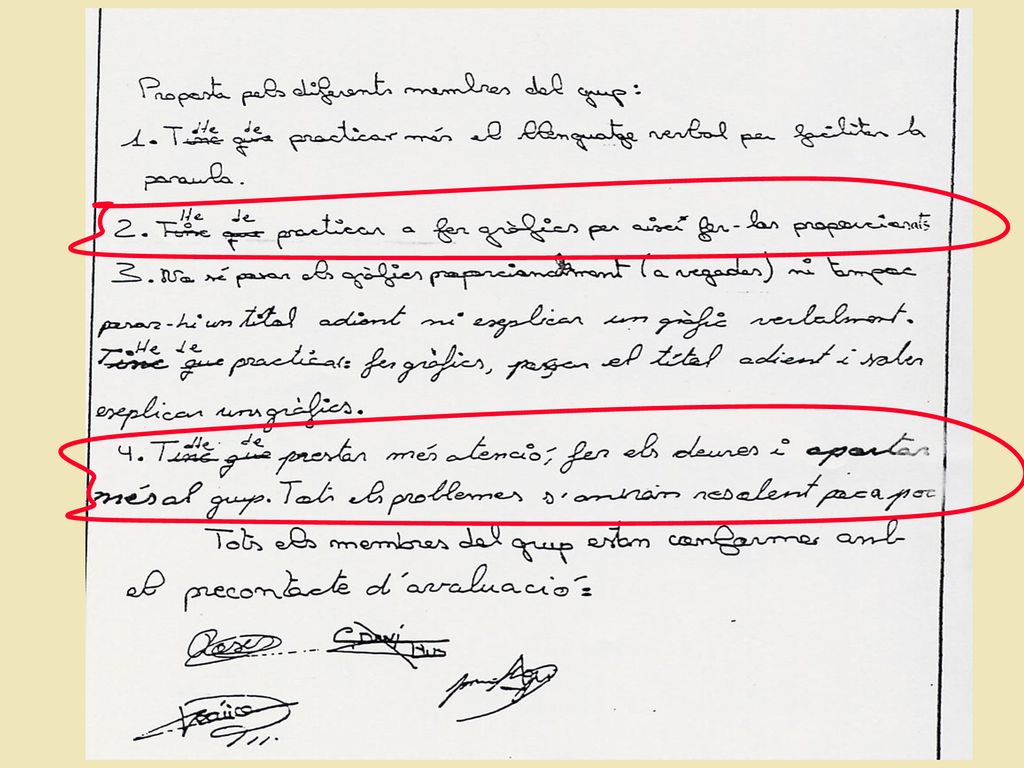 Proposta pels diferents membres del grup:
He de
1. Tinc que practicar més el llenguatge verbal per faciliter la
paraula.
He de
2. Tinc que practicar a fer gràfics per aixi fer-los proporcionats
3. No sé posar els gràfics proporcionalment (a vegades) ni tampoc
posar-hi un títol adient ni explicar un gràfic verbalment.
He de
Tinc que practicar: fer gràfics, posar el títol adient i saber
explicar uns gràfics.
He de
4. Tinc que prestar més atenció, fer els deures i aportar
més al grup. Tots els problemes s'aniran resolent poc a poc
Tots els membres del grup estan conformes amb
el precontacte d'avaluació: